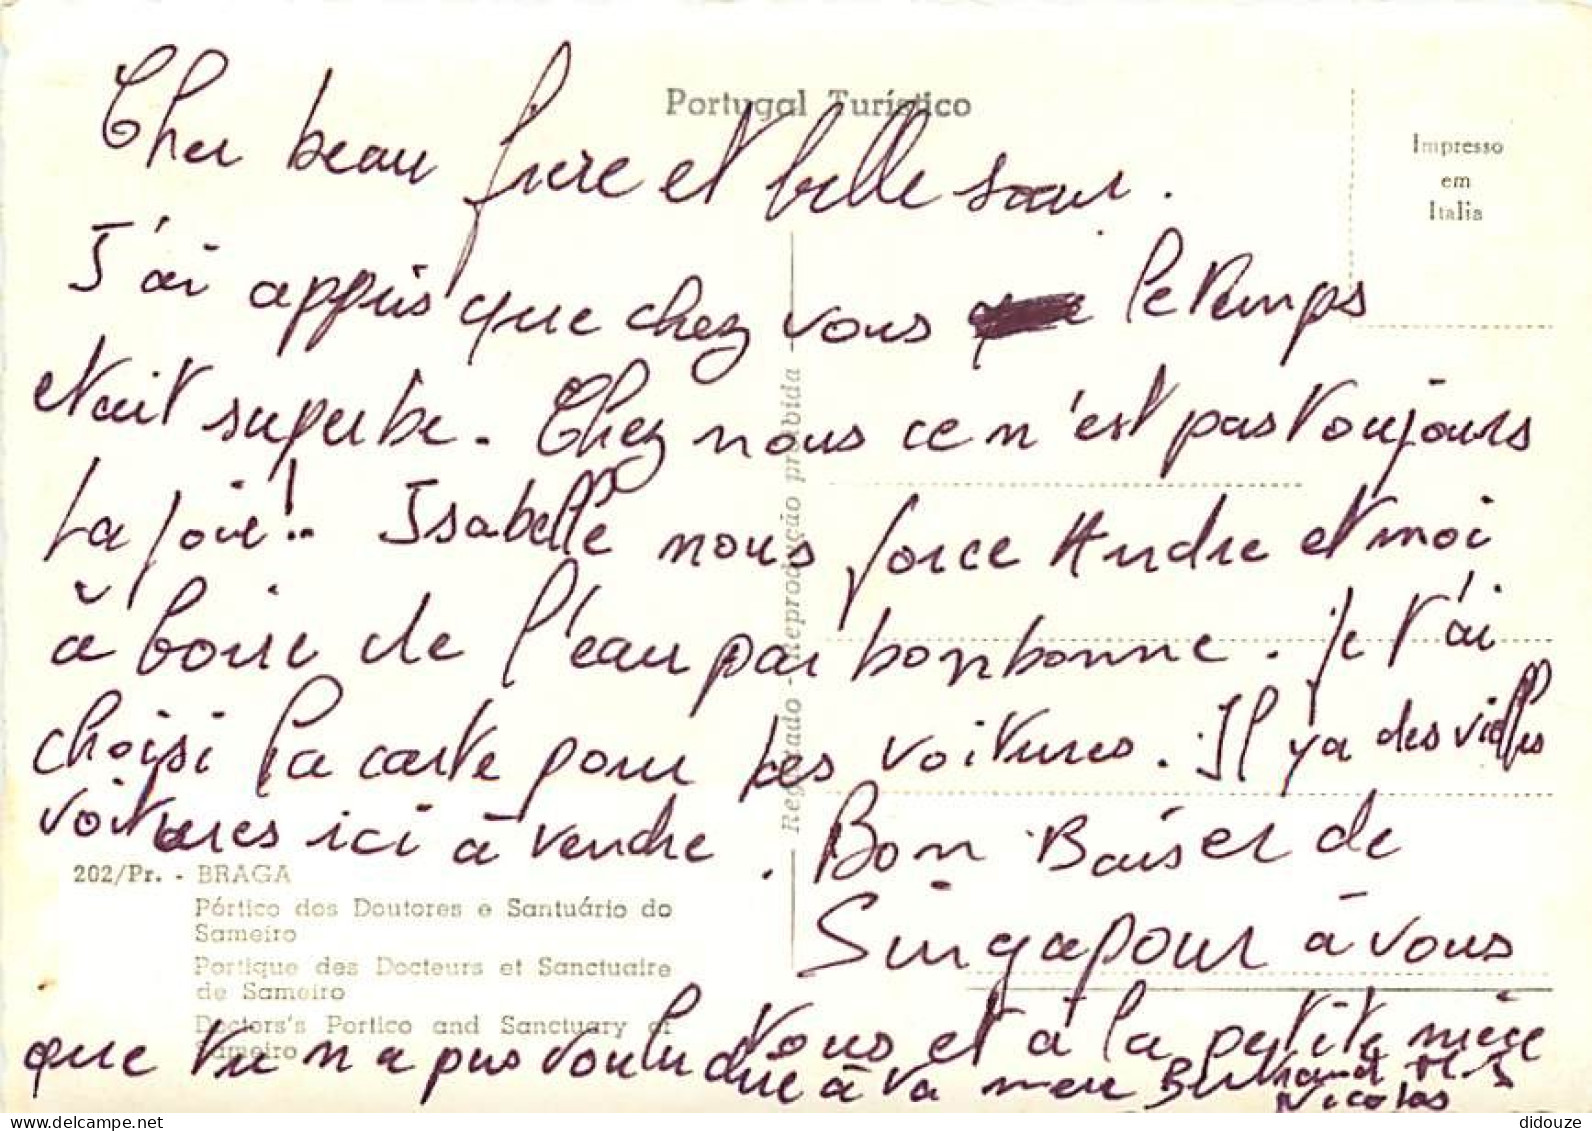 Portugal Turístico
Impresso
em
Italia
Cher beau frere et belle sœur.
J'ai appris que chez vous le temps
etait superbe. Chez nous ce n'est pas toujours
la joie!.. Isabelle nous force Andre et moi
à boire de l'eau par bonbonne. Je t'ai
choisi la carte pour les voitures. Il y a des vielles
voitures ici à vendre. Bon Baiser de
Singapour à vous
Vous et à la petite nièce
que tu n a pas voulu due à ta meu Bertrand
Nicolas
Registado - Reproduçáo proibida
202/Pr. - BRAGA
Pórtico dos Doutores e Santuário do
Sameiro
Portique des Docteurs et Sanctuaire
de Sameiro
Doctors's Portico and Sanctuary of
Sameiro
didouze